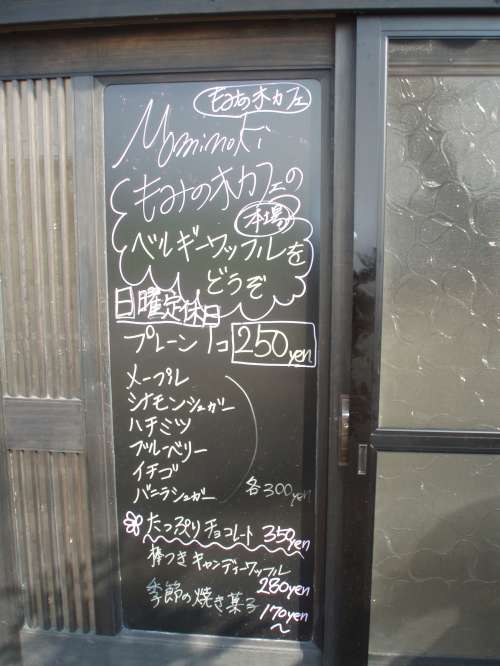 もみの木カフェ
Mominoki
もみの木カフェの
本場
ベルギーワッフルを
どうぞ
日曜定休日
プレーン 1コ 250yen
メープル
シナモンシュガー
ハチミツ
ブルーベリー
イチゴ
バニラシュガー
各300yen
たっぷりチョコレート 350yen
棒つきキャンディーワッフル
280yen
季節の焼き菓子 170yen
〜